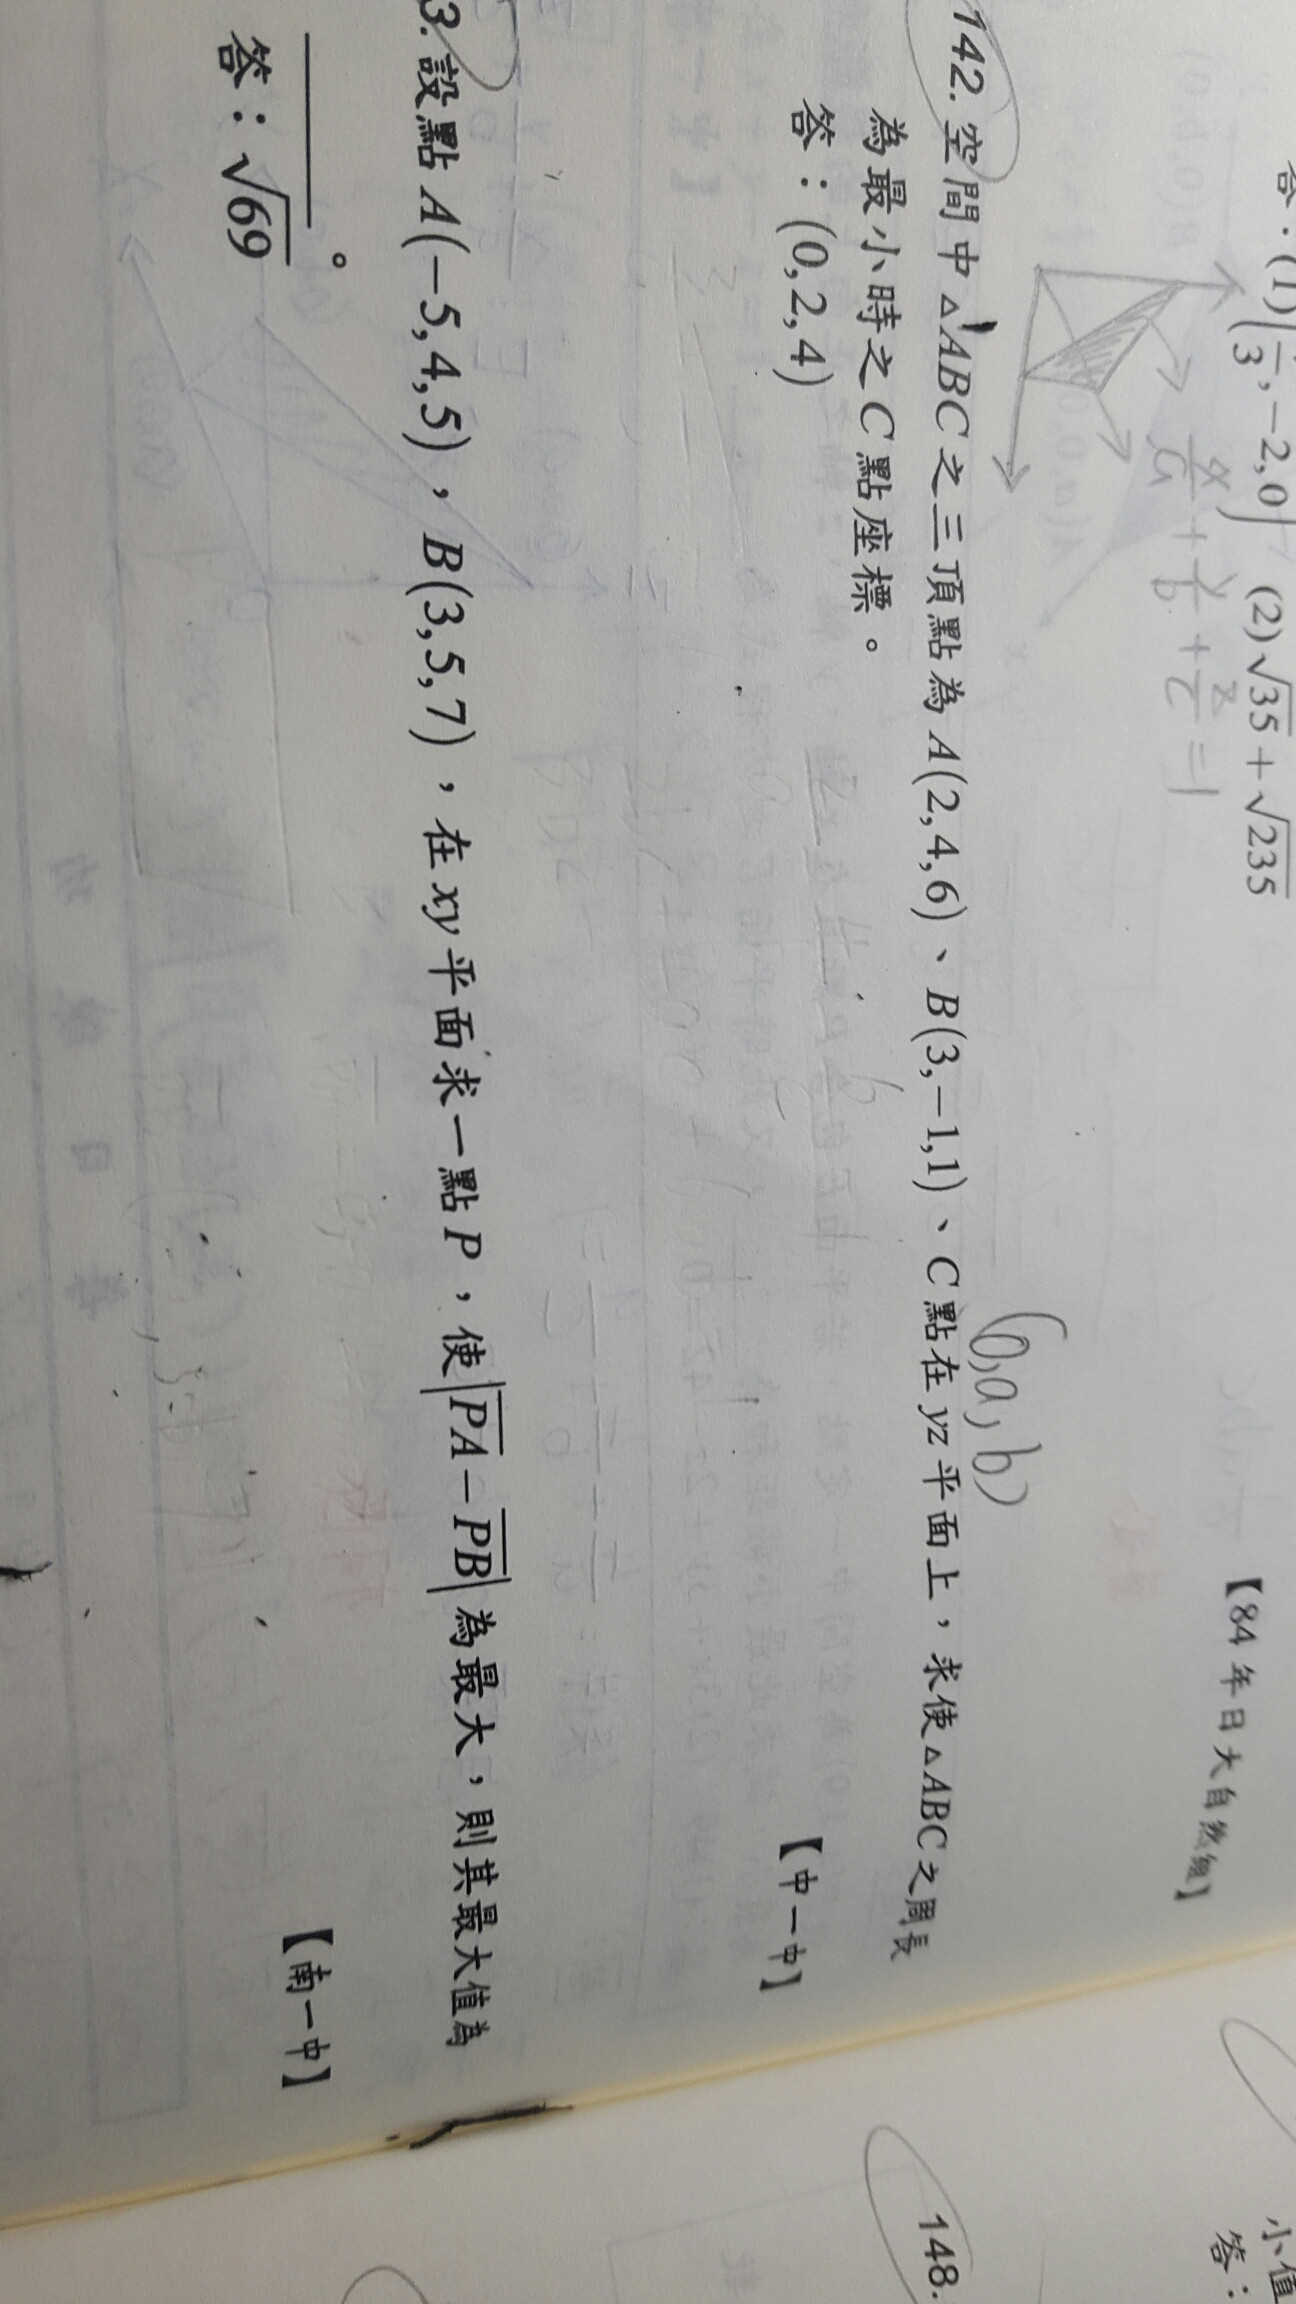 答：(1)(, -2, 0) (2)√35+√235
【84 年日大自然組】
x/a + y/b + z/c = 1
(0,a,b)
142. 空間中△ABC之三頂點為A(2,4,6)、B(3,-1,1)、C點在yz平面上，求使△ABC之周長
為最小時之C點座標。
答：(0,2,4)
【中一中】
3. 設點A(-5,4,5)，B(3,5,7)，在xy平面求一點P，使|PA-PB|為最大，則其最大值為
。
答：√69
【南一中】
148.
小值
答：